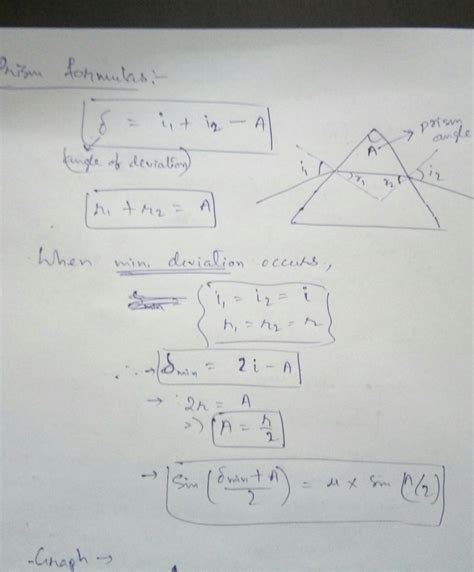 Prism formulas:-
δ = i₁ + i₂ - A
(angle of deviation)
r₁ + r₂ = A
prism angle
A
i₁
r₁
r₂
i₂
When min. deviation occurs,
i₁ = i₂ = i
r₁ = r₂ = r
∴ → δmin = 2i - A
→ 2r = A
=> A = r/2
→ Sin (δmin + A / 2) = μ x sin (A/2)
- Graph →